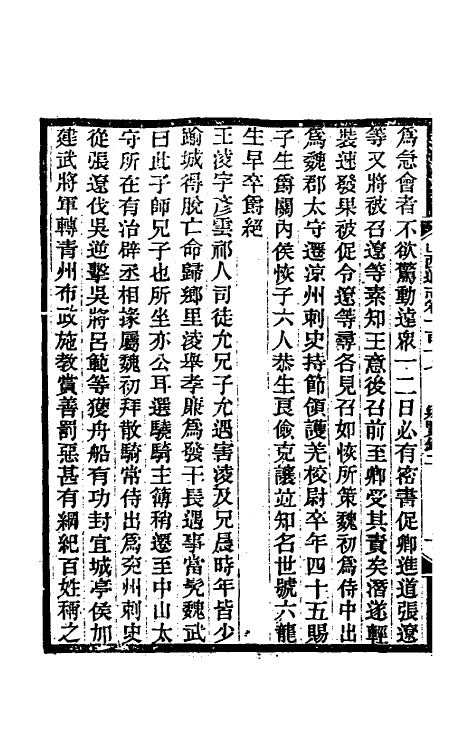 爲急會者不欲驚動遠衆一二日必有密書促卿進道張遼
等又將被召遼等素知王意後召前至卿受其責矣潛遂輕
裝速發果被促令遼等尋各見召如恢所策魏初爲侍中出
爲魏郡太守遷涼州刺史持節領護羌校尉卒年四十五賜
子生爵關內侯恢子六人恭生良儉克讓竝知名世號六龍
生早卒爵絕
王淩字彥雲祁人司徒允兄子允遇害淩及兄晨時年皆少
踰城得脫亡命歸鄉里淩舉孝廉爲發干長遇事當髠魏武
曰此子師兄子也所坐亦公耳選驍騎主簿稍遷至中山太
守所在有治辟丞相掾屬魏初拜散騎常侍出爲兖州刺史
從張遼伐吳逆擊吳將呂範等獲舟船有功封宜城亭侯加
建武將軍轉青州布政施教賞善罰惡甚有綱紀百姓稱之